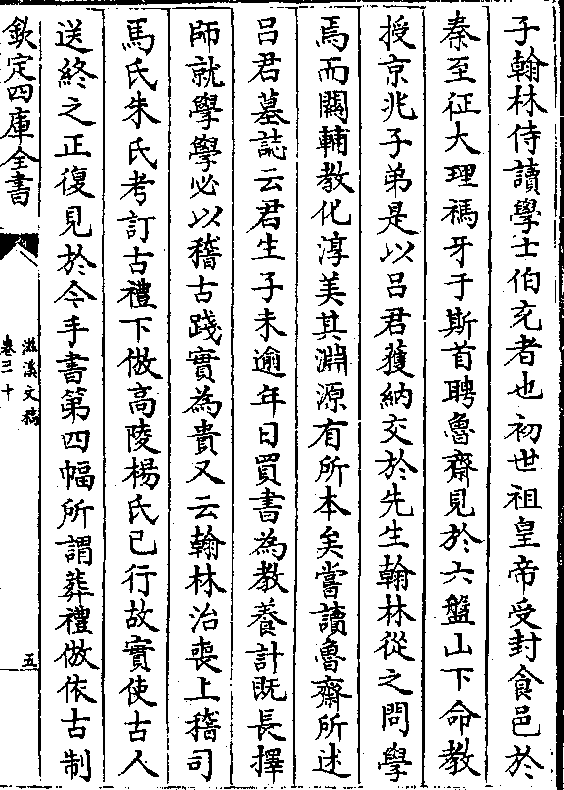 子翰林侍讀學士伯充者也初世祖皇帝受封食邑於
秦至征大理禡牙于斯首聘魯齋見於六盤山下命教
授京兆子弟是以呂君獲納交於先生翰林從之問學
焉而關輔教化淳美其淵源有所本矣嘗讀魯齋所述
呂君墓誌云君生子未逾年日買書為教養計既長擇
師就學學必以稽古踐實為貴又云翰林治喪上稽司
馬氏朱氏考訂古禮下倣高陵楊氏已行故實使古人
送終之正復見於今手書第四幅所謂葬禮倣依古制
欽定四庫全書
滋溪文稿
卷三十
五